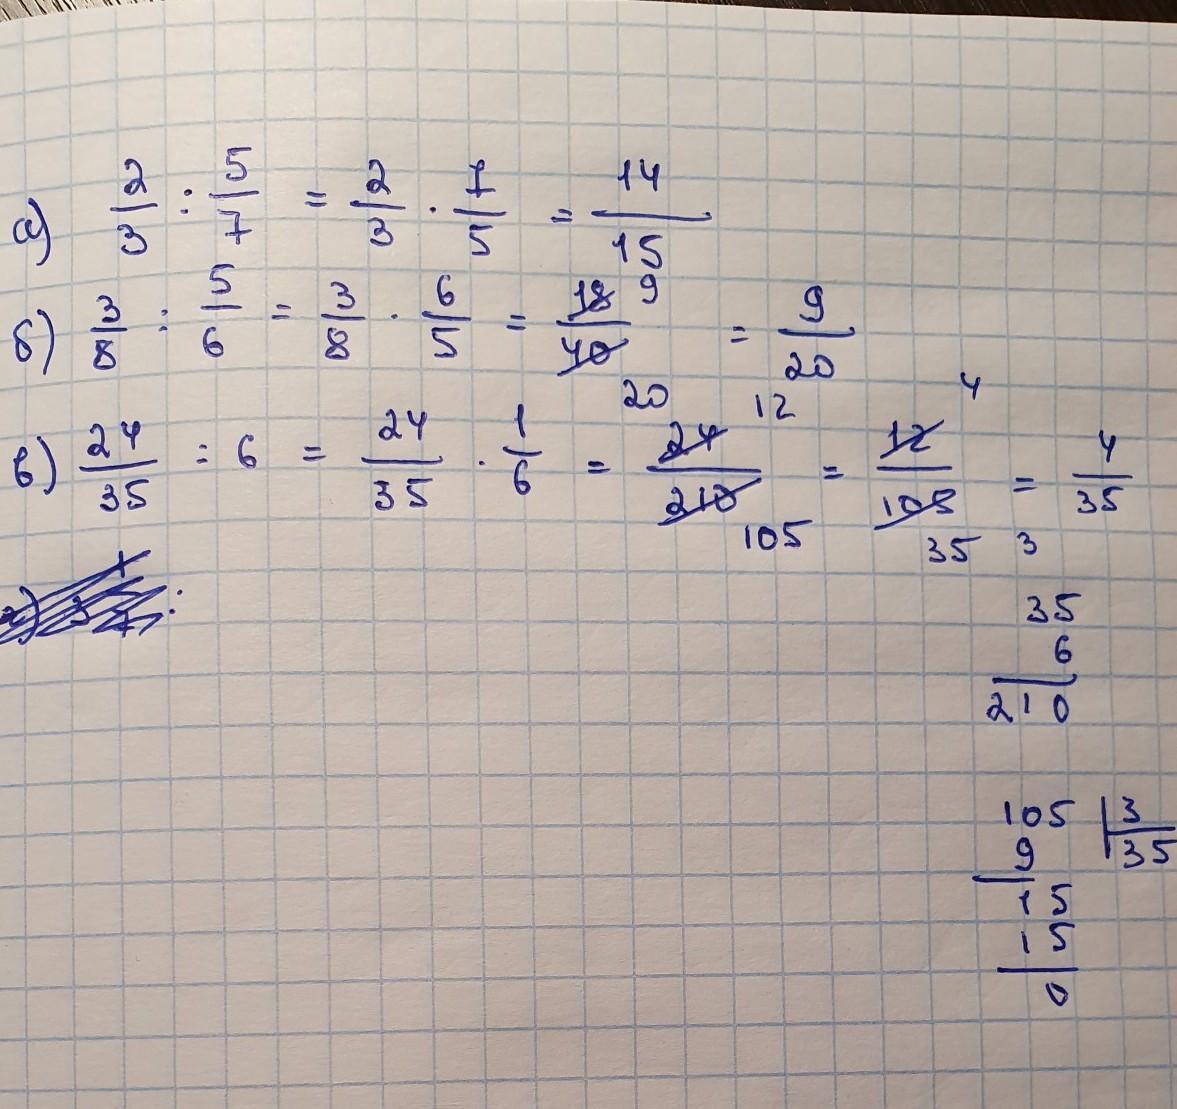 а) 2/3 : 5/7 = 2/3 · 7/5 = 14/15
б) 3/8 : 5/6 = 3/8 · 6/5 = 18/40 9 20 = 9/20
в) 24/35 : 6 = 24/35 · 1/6 = 24/210 12 105 = 12/105 4 35 3 = 4/35
35
6
210
105 3
9 35
15
15
0